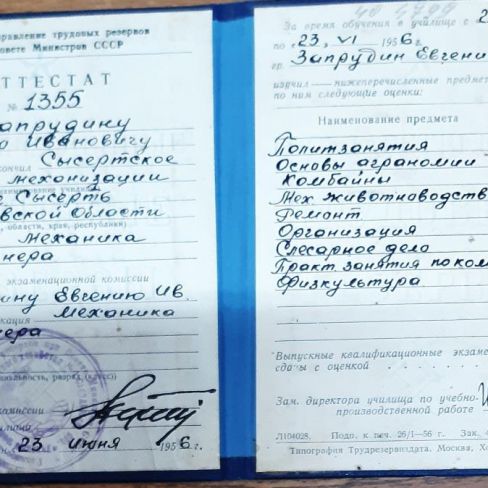 правление трудовых резервов
овете Министров СССР
ТТЕСТАТ
№ 1355
апрудину
Ивановичу
кончил Сысертское
механизации
Сысерть
вской Области
, области, края, республики)
механика
нера
экзаменационной комиссии
ину Евгению Ив.
Механика
кация
нера
альность, разряд (класс)
комиссии
23 июня 1956 г.
За время обучения в училище с 2
по „23„ VI 1956 г.
гр. Запрудин Евгени
изучил — нижеперечисленные предмет
по ним следующие оценки:
Наименование предмета
Политзанятия
Основы аграномии
Комбайны
Мех. животноводств
Ремонт
Организация
Слесарное дело
Практ. занятия по ком
Физкультура
Выпускные квалификационные экзаме
сданы с оценкой
Зам. директора училища по учебно-
производственной работе
Л104028. Подп. к печ. 26/1—56 г. Зак. 4
Типография Трудрезервиздата. Москва, Хо